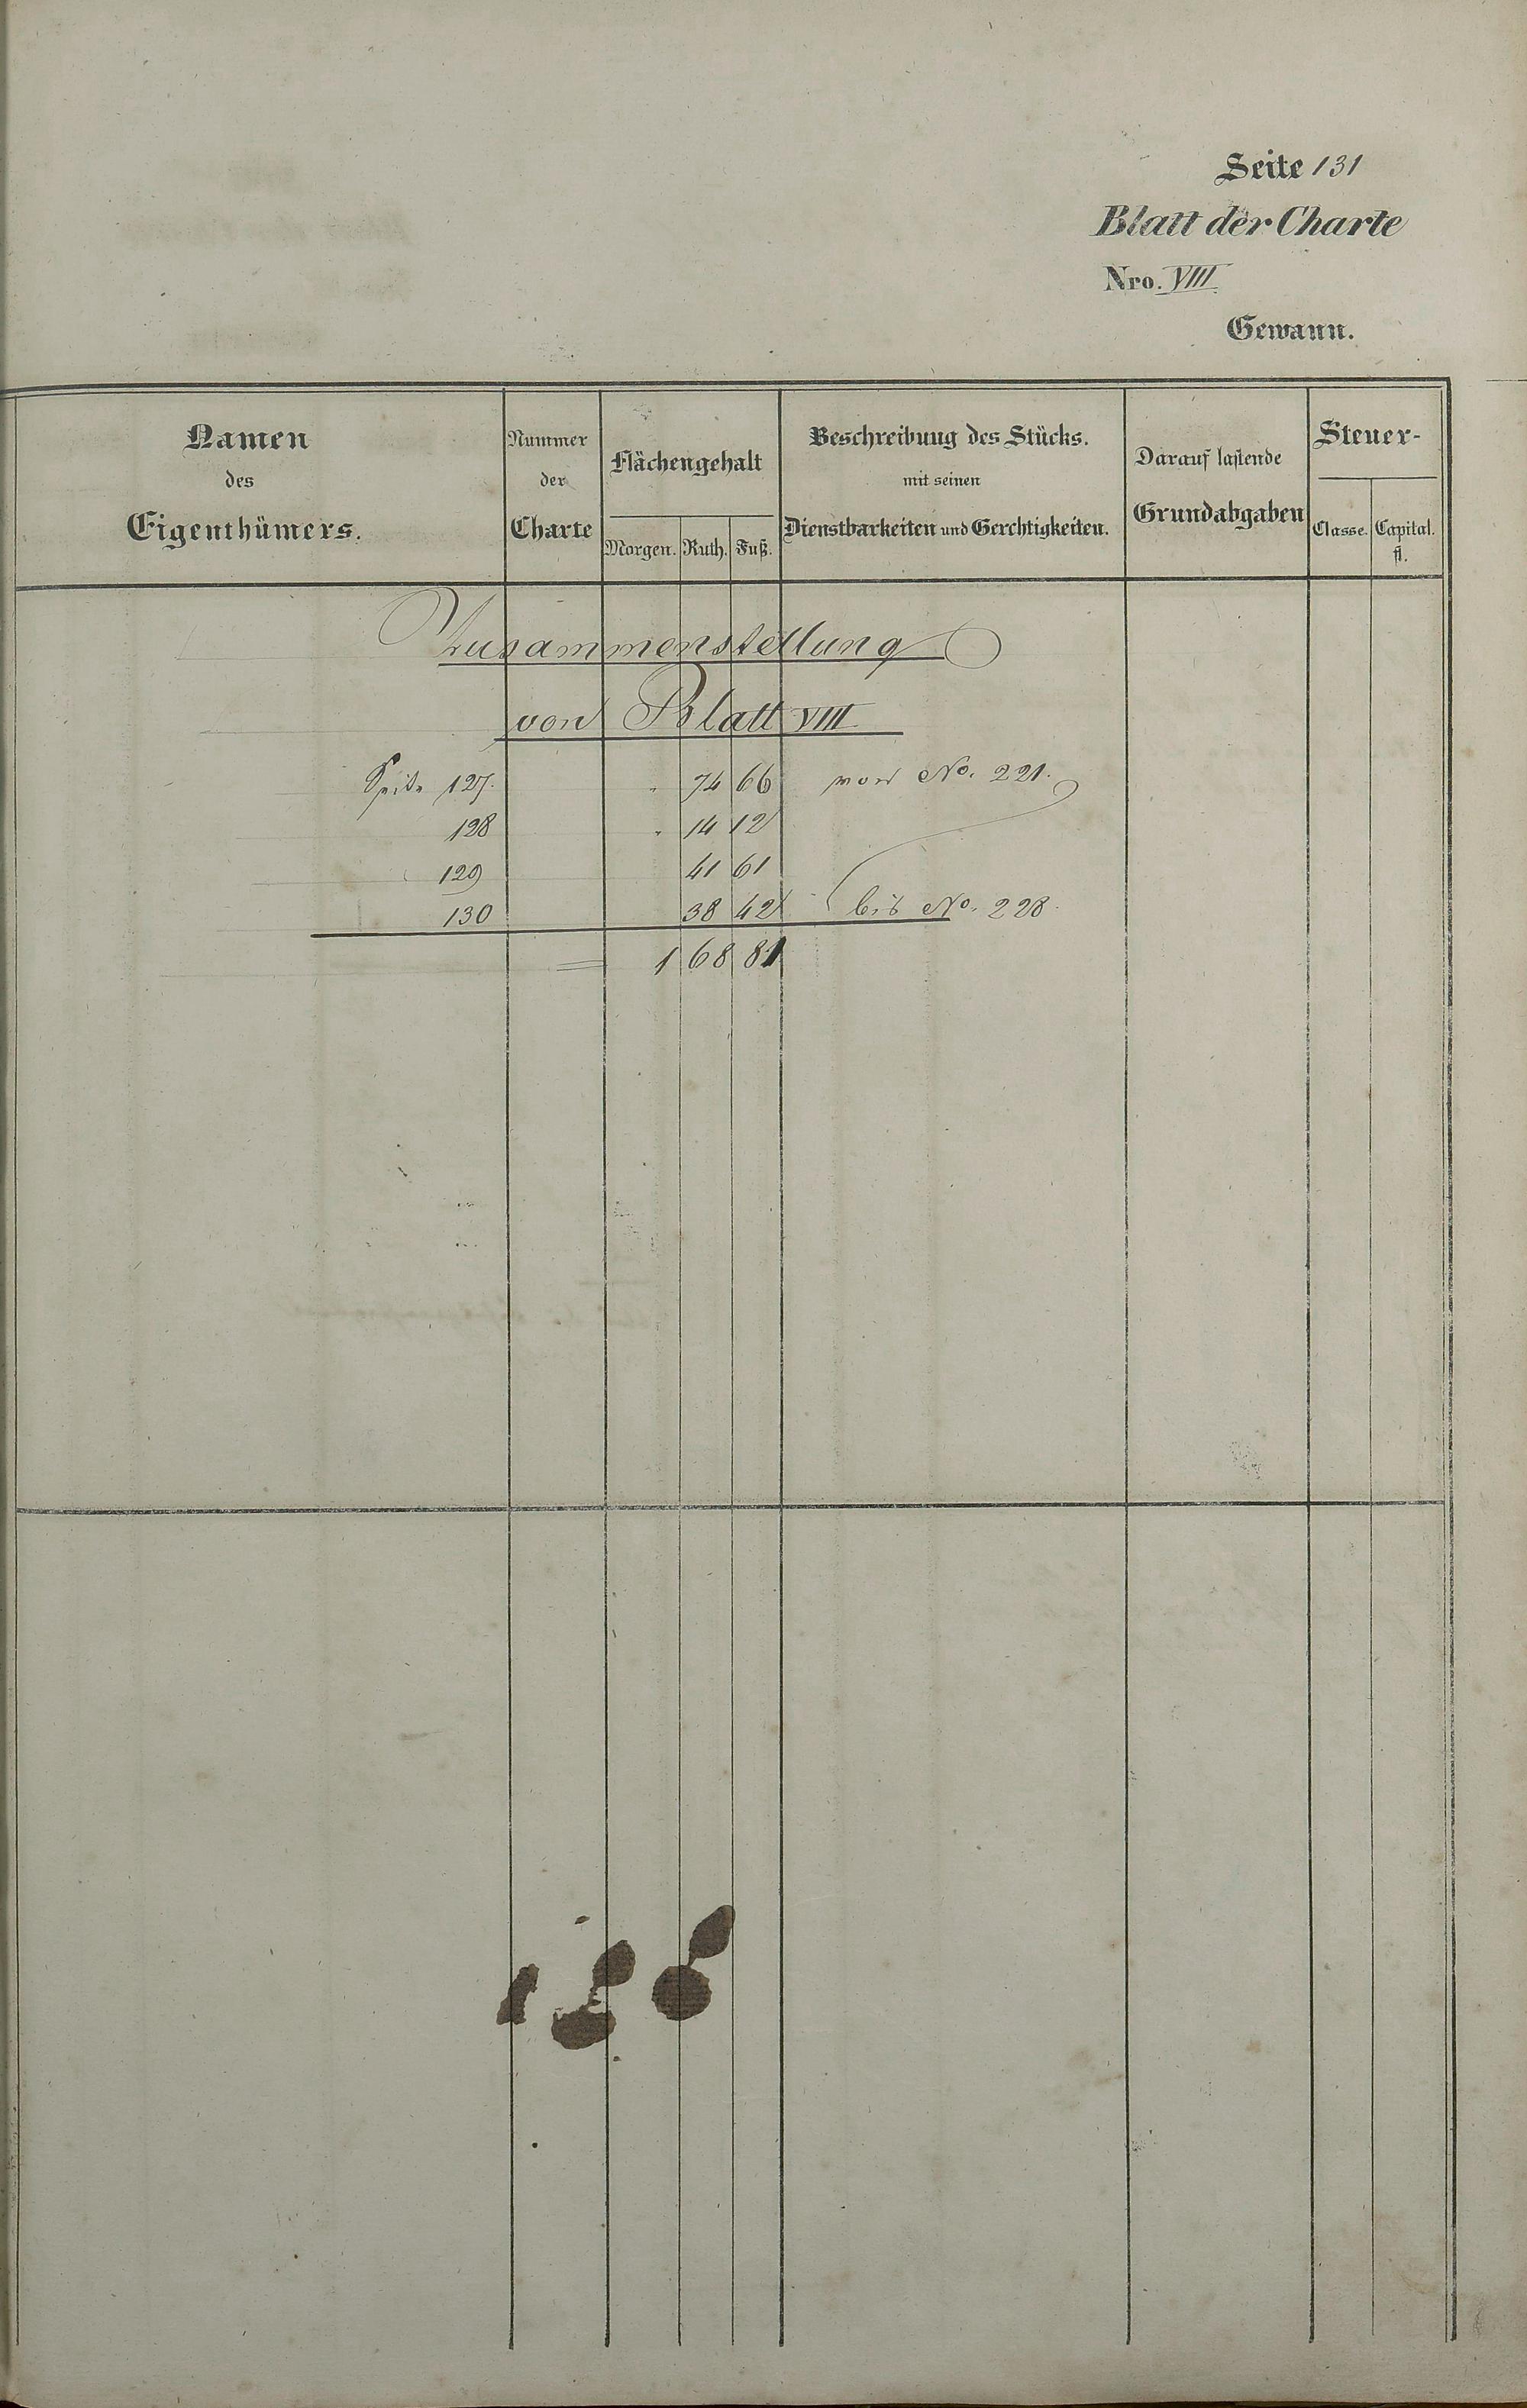 Seite 131
Blatt der Charte
Nro. VIII
Gewann.
Namen
des
Eigenthümers.
Nummer
der
Charte
Flächengehalt
Morgen. Ruth. Fuß.
Beschreibung des Stücks.
mit seinen
Dienstbarkeiten und Gerchtigkeiten.
Darauf lastende
Grundabgaben
Steuer-
Classe. Capital.
fl.
Zusammenstellung
von Blatt VIII
Seite 127. " 74 66 von No. 221.
128 " 14 12
129 41 61
130 38 42 bis No. 228.
= 1 68 81